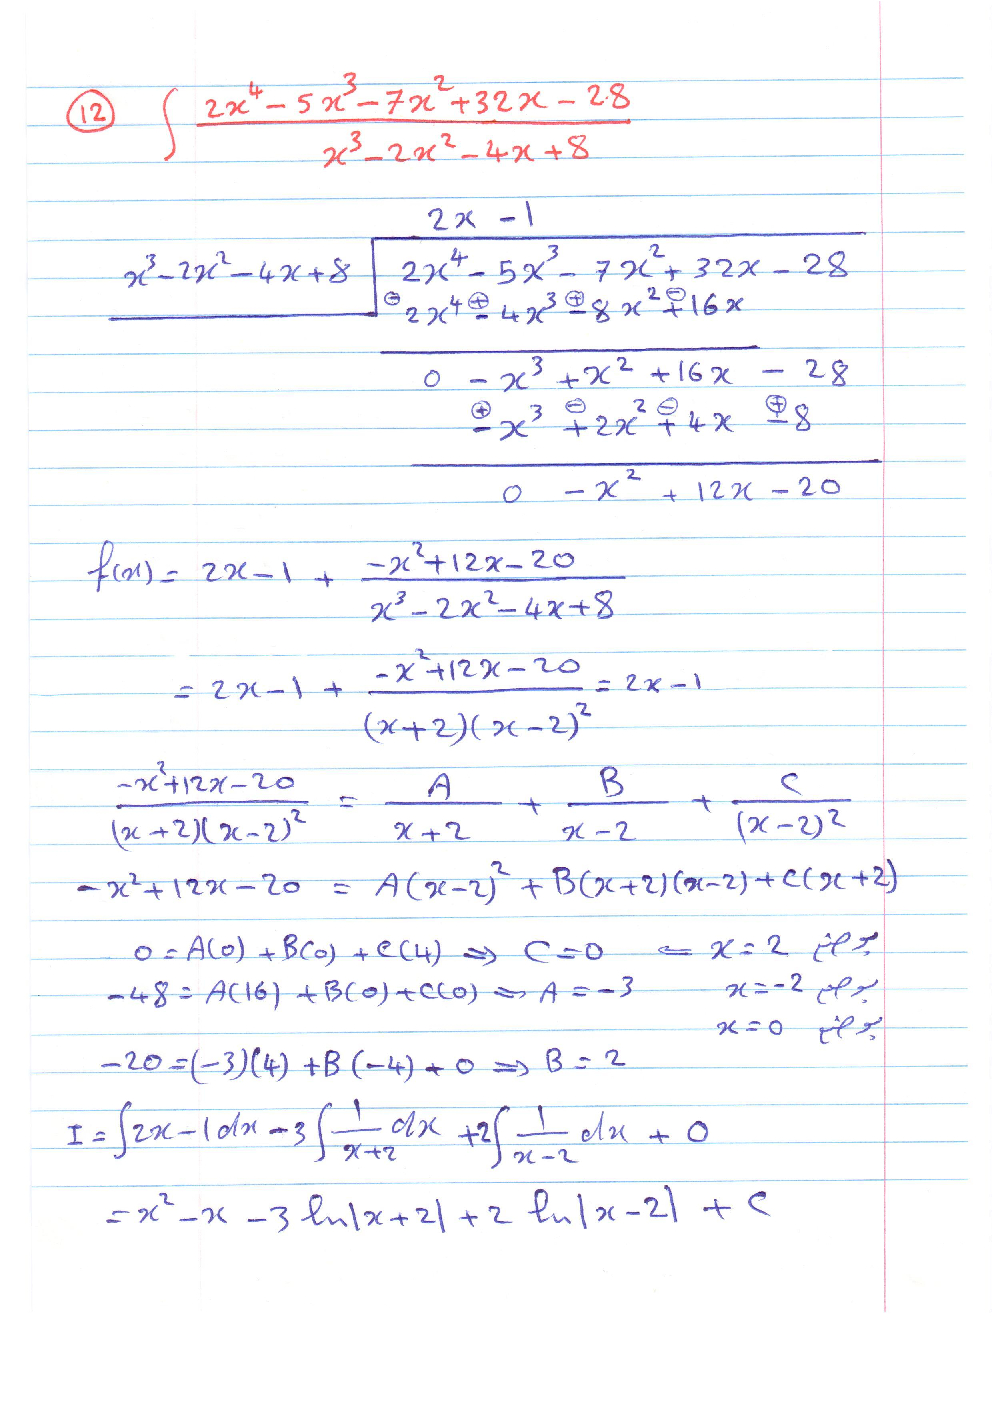 12 ∫ (2x⁴ - 5x³ - 7x² + 32x - 28) / (x³ - 2x² - 4x + 8)
2x - 1
x³ - 2x² - 4x + 8 | 2x⁴ - 5x³ - 7x² + 32x - 28
⊖ 2x⁴ ⊕ - 4x³ ⊕ - 8x² ⊖ + 16x
0 - x³ + x² + 16x - 28
⊕ - x³ ⊖ + 2x² ⊖ + 4x ⊕ - 8
0 - x² + 12x - 20
f(x) = 2x - 1 + (-x² + 12x - 20) / (x³ - 2x² - 4x + 8)
= 2x - 1 + (-x² + 12x - 20) / ((x+2)(x-2)²) = 2x - 1
(-x² + 12x - 20) / ((x+2)(x-2)²) = A / (x+2) + B / (x-2) + C / (x-2)²
-x² + 12x - 20 = A(x-2)² + B(x+2)(x-2) + C(x+2)
0 = A(0) + B(0) + C(4) ⇒ C = 0 ⇐ x = 2
-48 = A(16) + B(0) + C(0) ⇒ A = -3 x = -2
x = 0
-20 = (-3)(4) + B(-4) + 0 ⇒ B = 2
I = ∫ 2x - 1 dx - 3 ∫ 1/(x+2) dx + 2 ∫ 1/(x-2) dx + 0
= x² - x - 3 ln|x+2| + 2 ln|x-2| + C